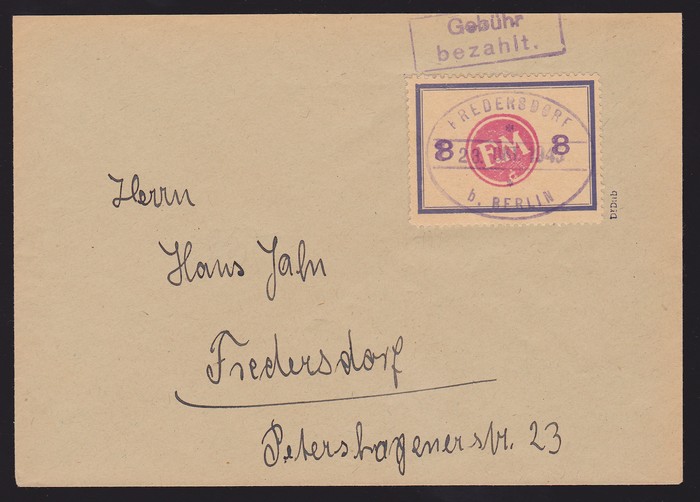 Gebühr
bezahlt.
FREDERSDORF
8 FM 8
1945
b. BERLIN
Herrn
Hans Jahn
Fredersdorf
Petershagenerstr. 23